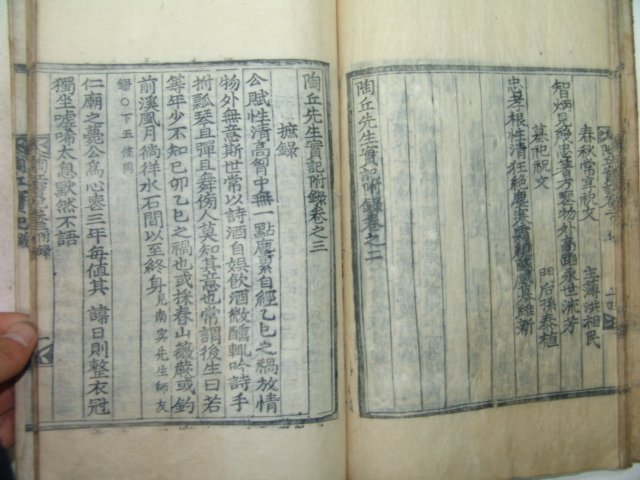 春秋常享祝文 主簿洪相民
智炳見幾忠著 物外高蹈永世流芳
墓祀祝文 門后孫泰植
忠孝根性清狂絕塵 維新
陶丘先生實記附錄卷之二
陶丘先生實記附錄卷之三
摭錄
公賦性清高胷中無一點塵累自經乙巳之禍放情
物外無意斯世常以詩酒自娛飲酒微醺輒吟詩手
拊瓢琴且彈且舞傍人莫知其意也常謂後生曰若
等年少不知己卯乙巳之禍也或採春山薇蕨或釣
前溪風月徜徉水石間以至終身見南冥先生師友
錄○下五條同
仁廟之薨公爲心喪三年每値其 諱日則整衣冠
獨坐噓唏太息默然不語